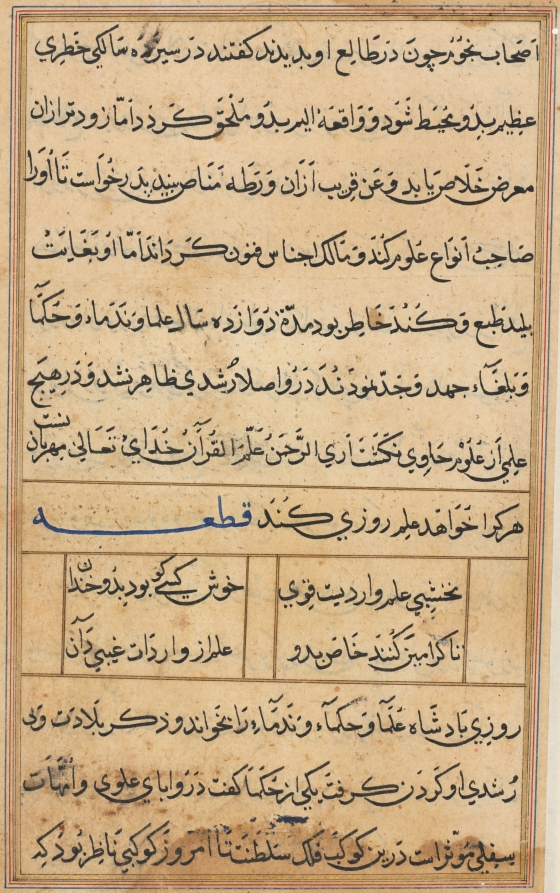 اصحاب نجوم چون در طالع او بدیدند کفتند در سیزده سالکی خطری
عظیم بدو محیط شود و واقعهٔ الیم بدو ملحق کردد اما زودتر ازان
معرض خلاص یابد و عن قریب ازان ورطه مناص بیند پدر خواست تا اورا
صاحب انواع علوم کند و مالک اجناس فنون کرداند اما او بغایت
بلید طبع و کند خاطر بود مدة دوازده سال علما و ندماء و حکما
و بلغاء جهد و جد نمودند درو اصلا رشدی ظاهر نشد و در هیچ
علمی از علوم حاوی نکشت اری الرحمن علم القرآن خدای تعالی مهربان نیست
هر کرا خواهد علم روزی کند قطعه
نخشبی علم واردیت قوی
خوش کسی کو بود بدو خدا دان
تا کرا می کنند خاص بدو
علم از واردات غیبی دان
روزی پادشاه علما و حکماء و ندماء را بخواند و ذکر بلادت و بی
رشدی او کردن کرفت یکی از حکما کفت در اوابای علوی و امهات
سفلی مؤثر است درین کوکب فلک سلطنت تا امروز کوکبی ناظر بود که